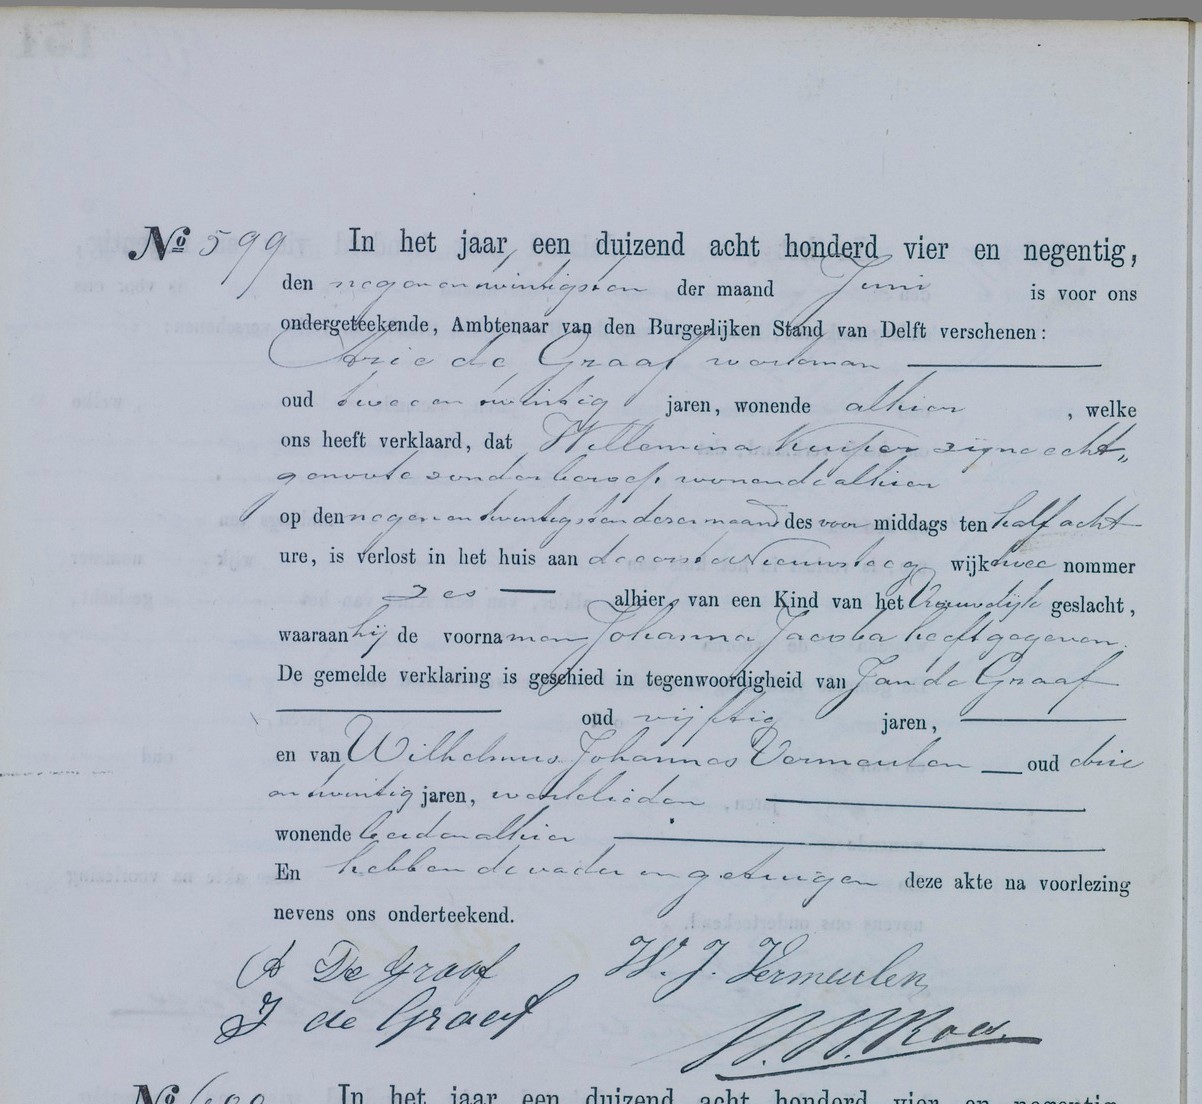 No 599 In het jaar een duizend acht honderd vier en negentig,
den negenentwintigsten der maand Juni is voor ons
ondergeteekende, Ambtenaar van den Burgerlijken Stand van Delft verschenen:
Arie de Graaf workman
oud tweeentwintig jaren, wonende alhier , welke
ons heeft verklaard, dat Willemina Kuiper zijne echt„
genoote zonder beroep, wonende alhier
op den negenentwintigsten dezer maand des voor middags ten half acht
ure, is verlost in het huis aan de eerste Nieuwsteeg wijk twee nommer
zes alhier, van een Kind van het Vrouwelijk geslacht,
waaraan hij de voornamen Johanna Jacoba heeft gegeven.
De gemelde verklaring is geschied in tegenwoordigheid van Jan de Graaf
oud vijftig jaren,
en van Wilhelmus Johannes Vermeulen oud drie
entwintig jaren, werklieden
wonende beiden alhier
En hebben de vader en getuigen deze akte na voorlezing
nevens ons onderteekend.
A De Graaf W. J. Vermeulen
J de Graaf
No 600 In het jaar een duizend acht honderd vier en negentig,